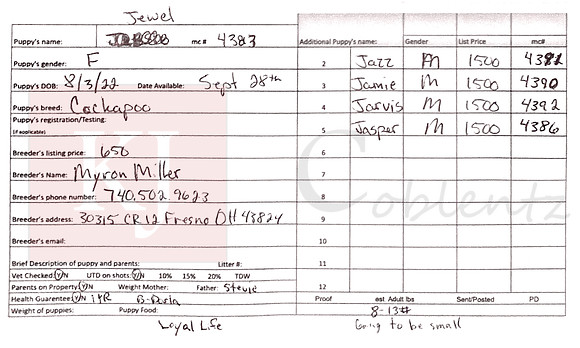 Jewel
Puppy's name: mc# 4383 Additional Puppy's name: Gender List Price mc#
Puppy's gender: F 2 Jazz M 1500 4381
Puppy's DOB: 8/3/22 Date Available: Sept 28th 3 Jamie M 1500 4390
Puppy's breed: Cockapoo 4 Jarvis M 1500 4392
Puppy's registration/Testing: 5 Jasper M 1500 4386
(if applicable)
Breeder's listing price: 650 6
Breeder's Name: Myron Miller 7
Breeder's phone number: 740.502.9623 8
Breeder's address: 30315 CR 12 Fresno OH 43824 9
Breeder's email: 10
Brief Description of puppy and parents: Litter #: 11
Vet Checked: Y/N UTD on shots: Y/N 10% 15% 20% TDW
Parents on Property: Y/N Weight Mother: Father: Stevie 12
Health Guarantee: Y/N 1YR Proof est Adult lbs Sent/Posted PD
Weight of puppies: Puppy Food: 8-13#
Loyal Life Going to be small
KJ Coblentz